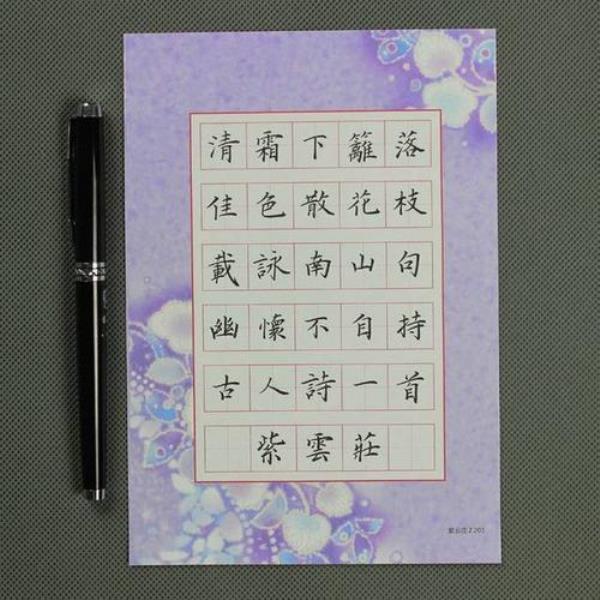 清霜下籬落
佳色散花枝
載詠南山句
幽懷不自持
古人詩一首
紫雲莊
紫云庄 Z 203